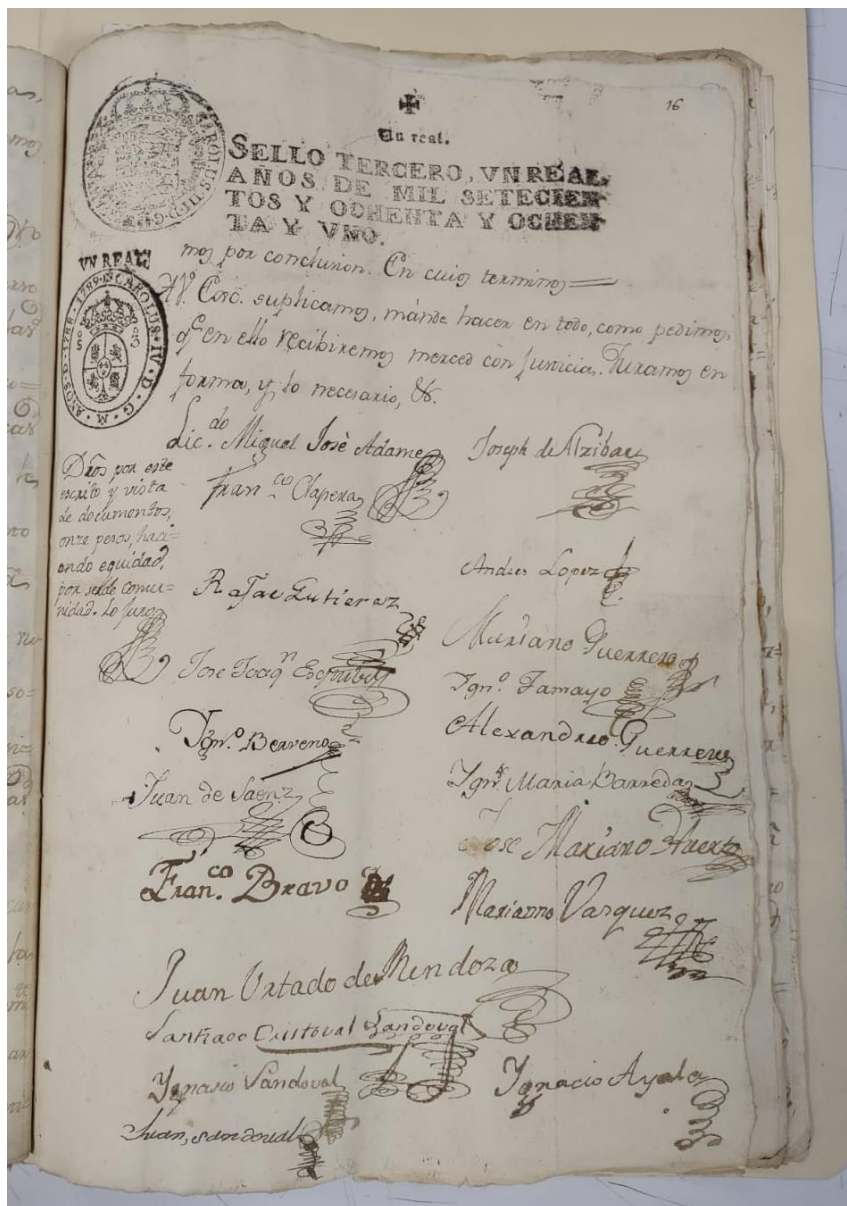 16
Un real.
SELLO TERCERO, VN REAL,
AÑOS DE MIL SETECIEN
TOS Y OCHENTA Y OCHEN
TA Y VNO.
CAROLUS III D. G.
VN REAL
CAROLUS IV D G
AÑOS D 1788 1789
mos por conclusion. En cuios terminos=
A V. Exc.ᵃ suplicamos, mánde hacer en todo, como pedimos,
qᵉ en ello recibiremos merced con justicia. Juramos en
forma, y lo necesario, &.
Lic.ᵈᵒ Miguel José Adame
Joseph de Alzibar
Dros por este
escrito y vista
de documentos,
onze pesos, haci-
endo equidad,
por ser de comu=
nidad. Lo juro
Franᶜᵒ Clapera
Andres Lopez
Rafae Gutieraz
Mariano Guerrero
Jose Joaqⁿ Esquibel
Ygnº. Tamayo
Ygnº. Berveno
Alexandro Guerrero
Juan de Saenz
Ygnº. Maria Barreda
Jose Mariano Huerto
Fran.ᶜᵒ Bravo
Marianno Vasquez
Juan Vrtado de Mendoza
Santiaco Cristoval Sandoval
Ygnasio Sandoval
Ygnacio Ayala
Juan, sandoual